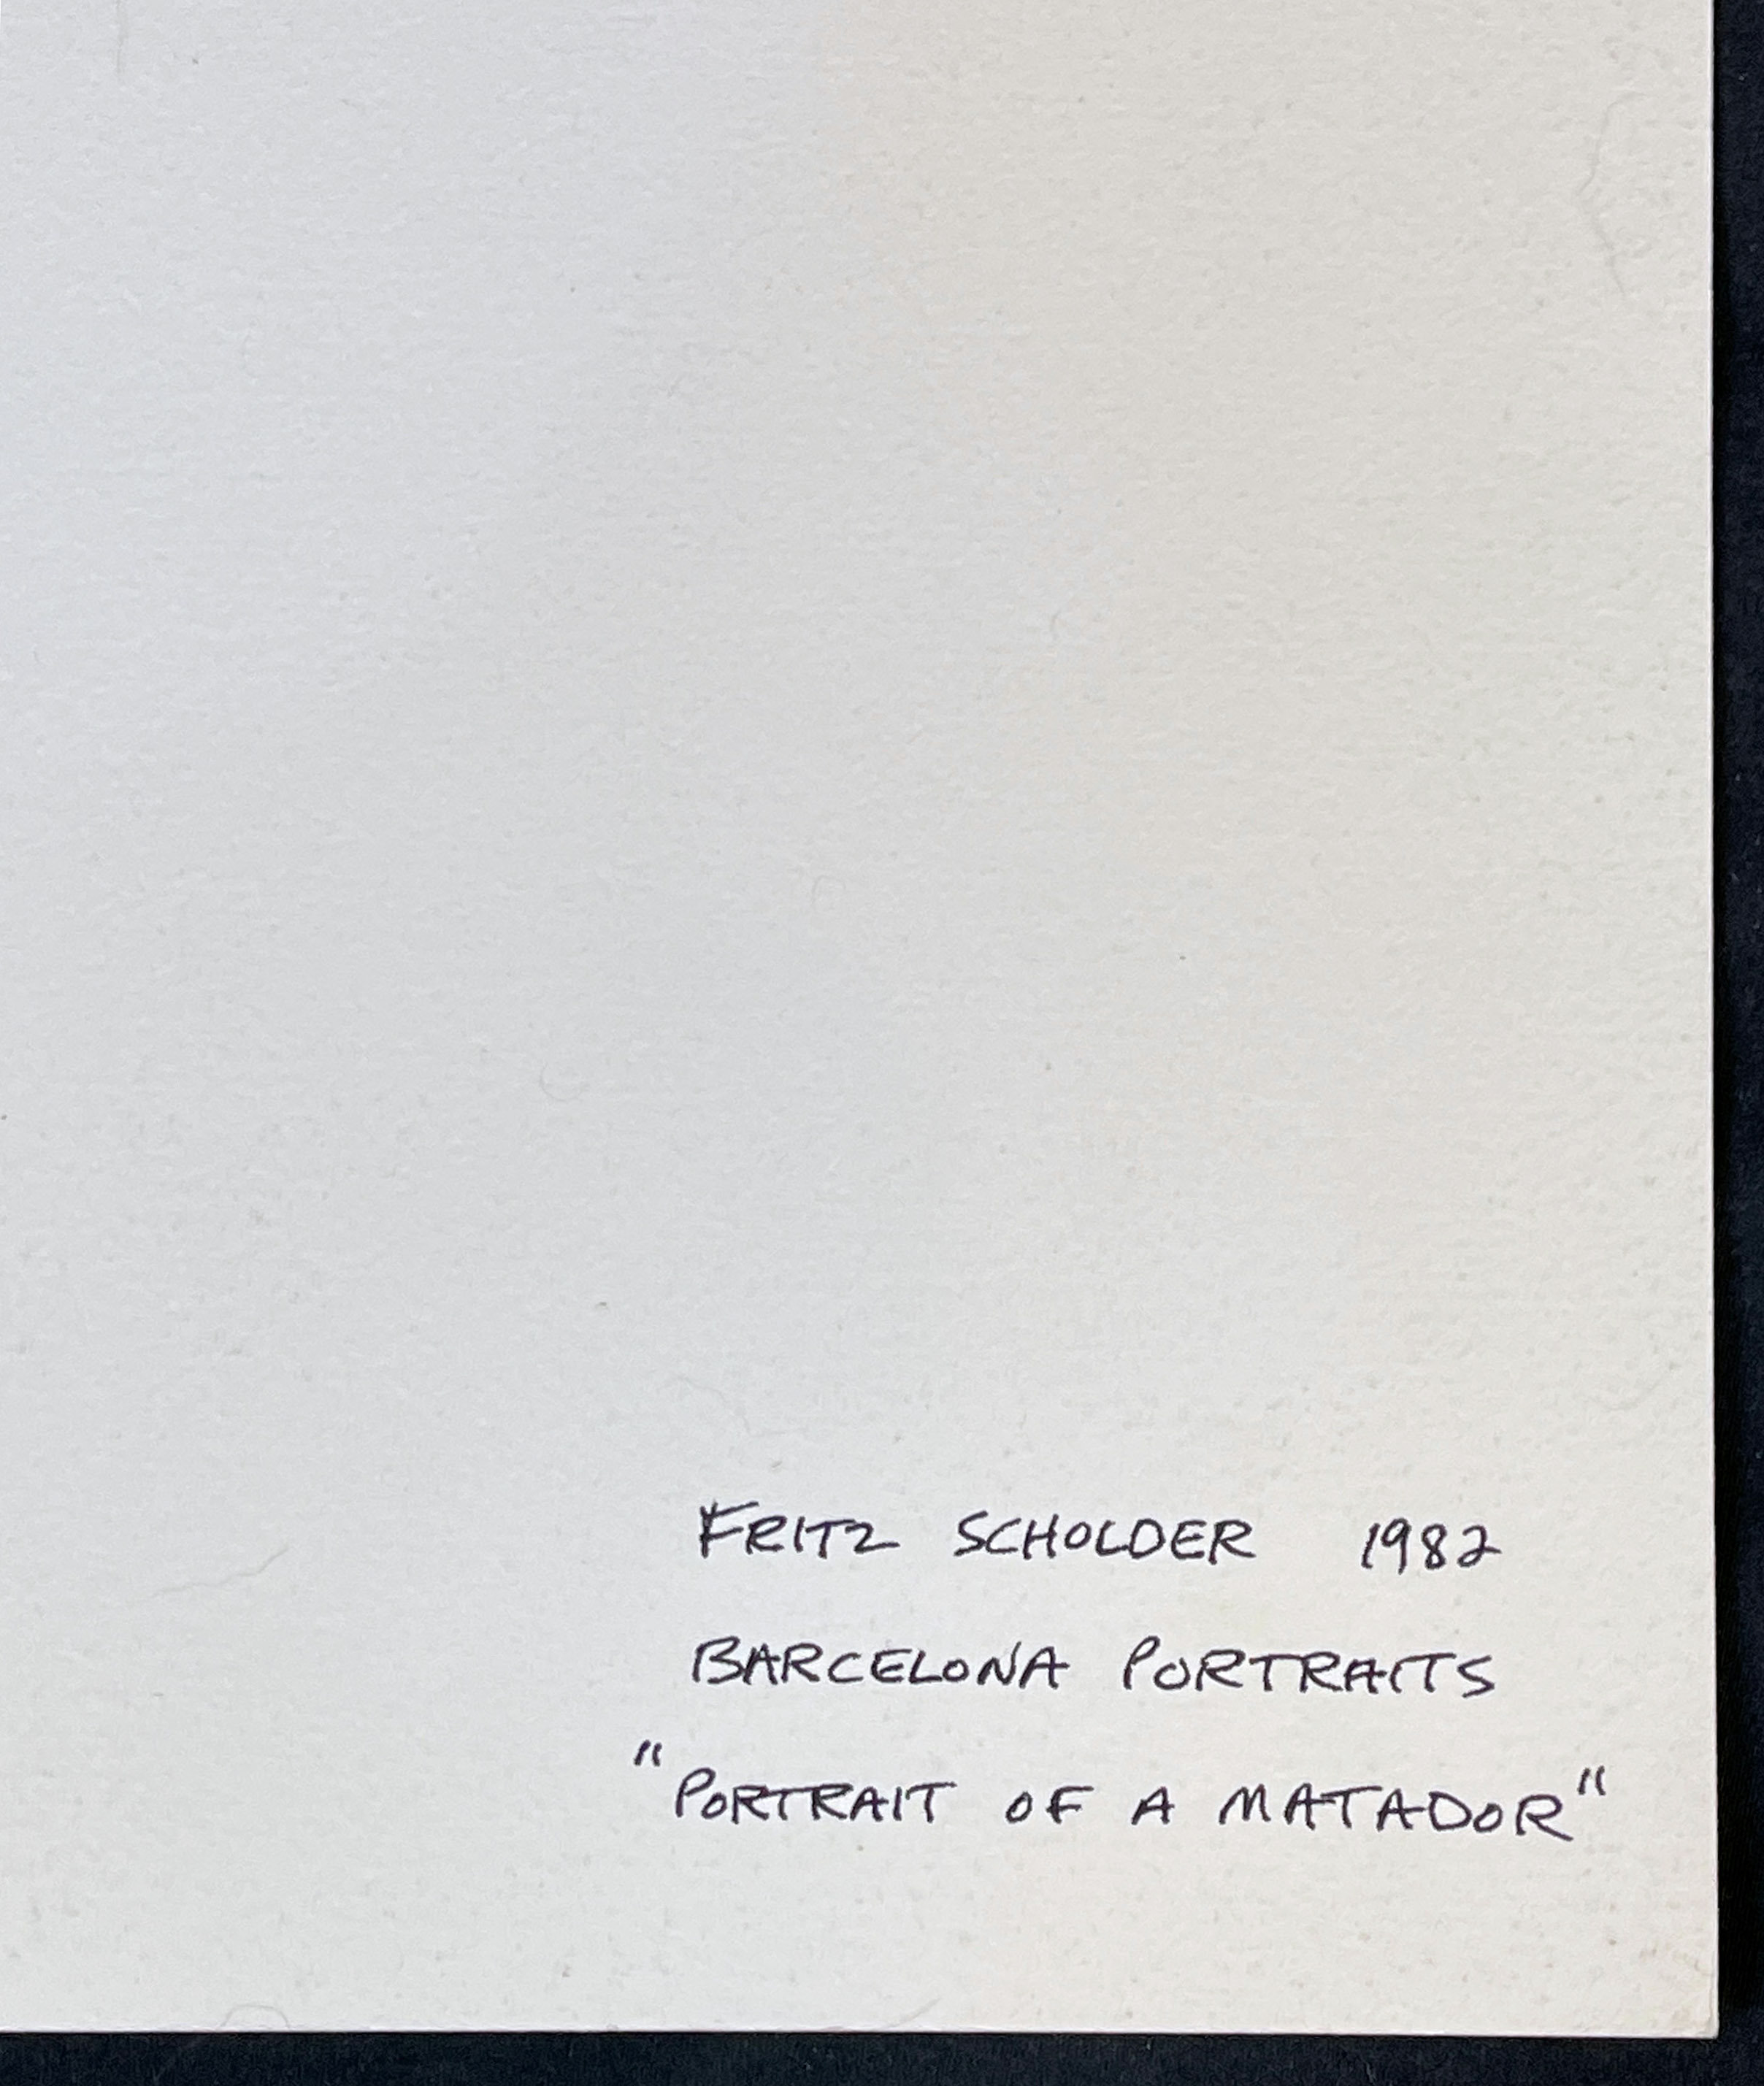 FRITZ SCHOLDER 1982
BARCELONA PORTRAITS
"PORTRAIT OF A MATADOR"